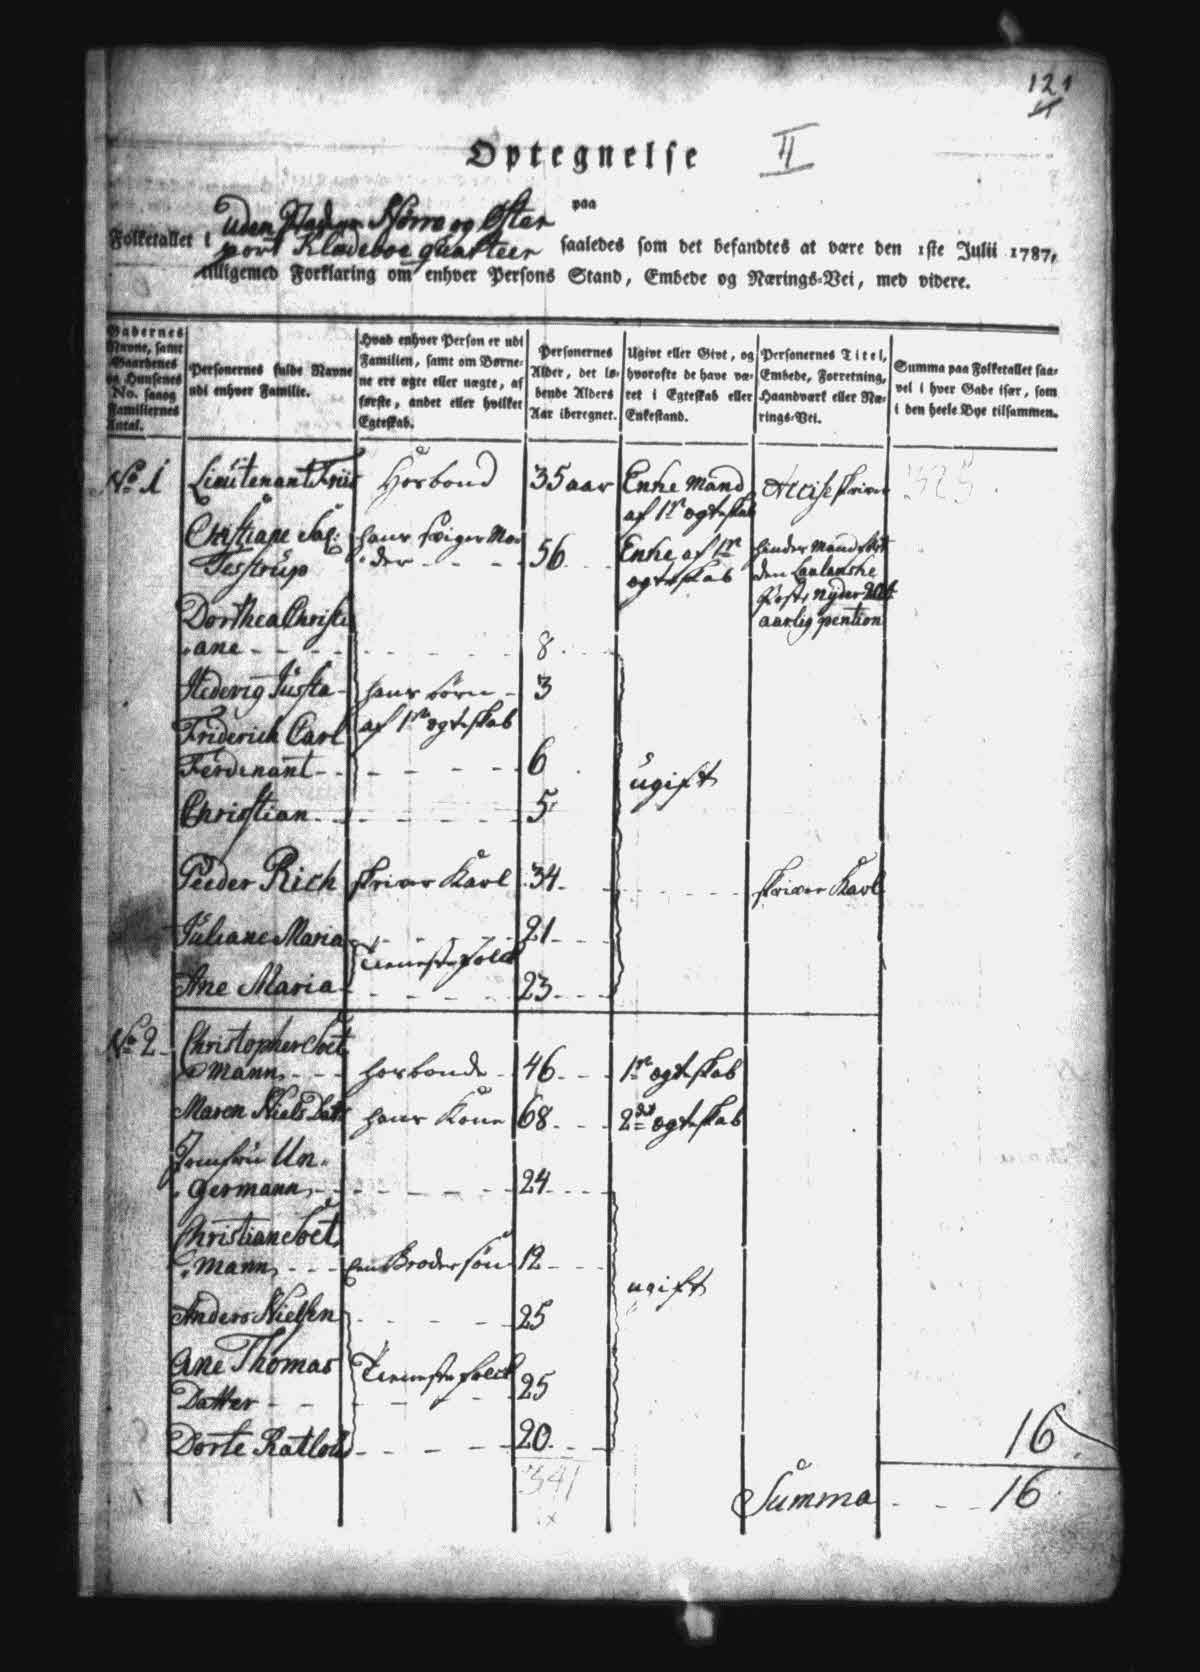 121
Optegnelse II
paa
uden Nørre og Øster
Folketallet i port Klædeboe quarteer saaledes som det befandtes at være den 1ste Julii 1787,
tilligemed Forklaring om enhver Persons Stand, Embede og Nærings-Vei, med videre.
Gadernes Navne, samt Gaardenes og Huusenes No. saaog Familiernes Antal.
Personernes fulde Navne udi enhver Familie.
Hvad enhver Person er udi Familien, samt om Børnene ere ægte eller uægte, af første, andet eller hvilket Egteskab.
Personernes Alder, det løbende Alders Aar iberegnet.
Ugivt eller Givt, og hvorofte de have været i Egteskab eller Enkestand.
Personernes Titel, Embede, Forretning, Haandværk eller Nærings-Vei.
Summa paa Folketallet saavel i hver Gade især, som i den heele Bye tilsammen.
No. 1 Lieutenant Friis Hosbond 35 aar Enke Mand Accise skriver 325
af 1te egteskab
Christiane Sal: hans Sviger Mo- 56 Enke af 1te
Testrup der egteskab
den Laalanske
Post, nyder
aarlig pention
Dorthea Christi
ane 8
Hedevig Justa hans børn 3
af 1te egteskab
Friderich Carl
Ferdinant 6 ugift
Christian 5
Peeder Rich skriver Karl 34 skriver Karl
Juliane Maria 21
Tienestefolck
Ane Maria 23
No. 2 Christopher Soet
mann hosbonde 46 1te egteskab
Maren Niels Datt hans Kone 68 2det egteskab
Jomfru Un
germann 24
Christian Soet
mann Broder søn 12 ugift
Anders Nielsen 25
Ane Thomas Tienestefolck
Datter 25
Dorte Ratlou 20 16
341
Summa 16